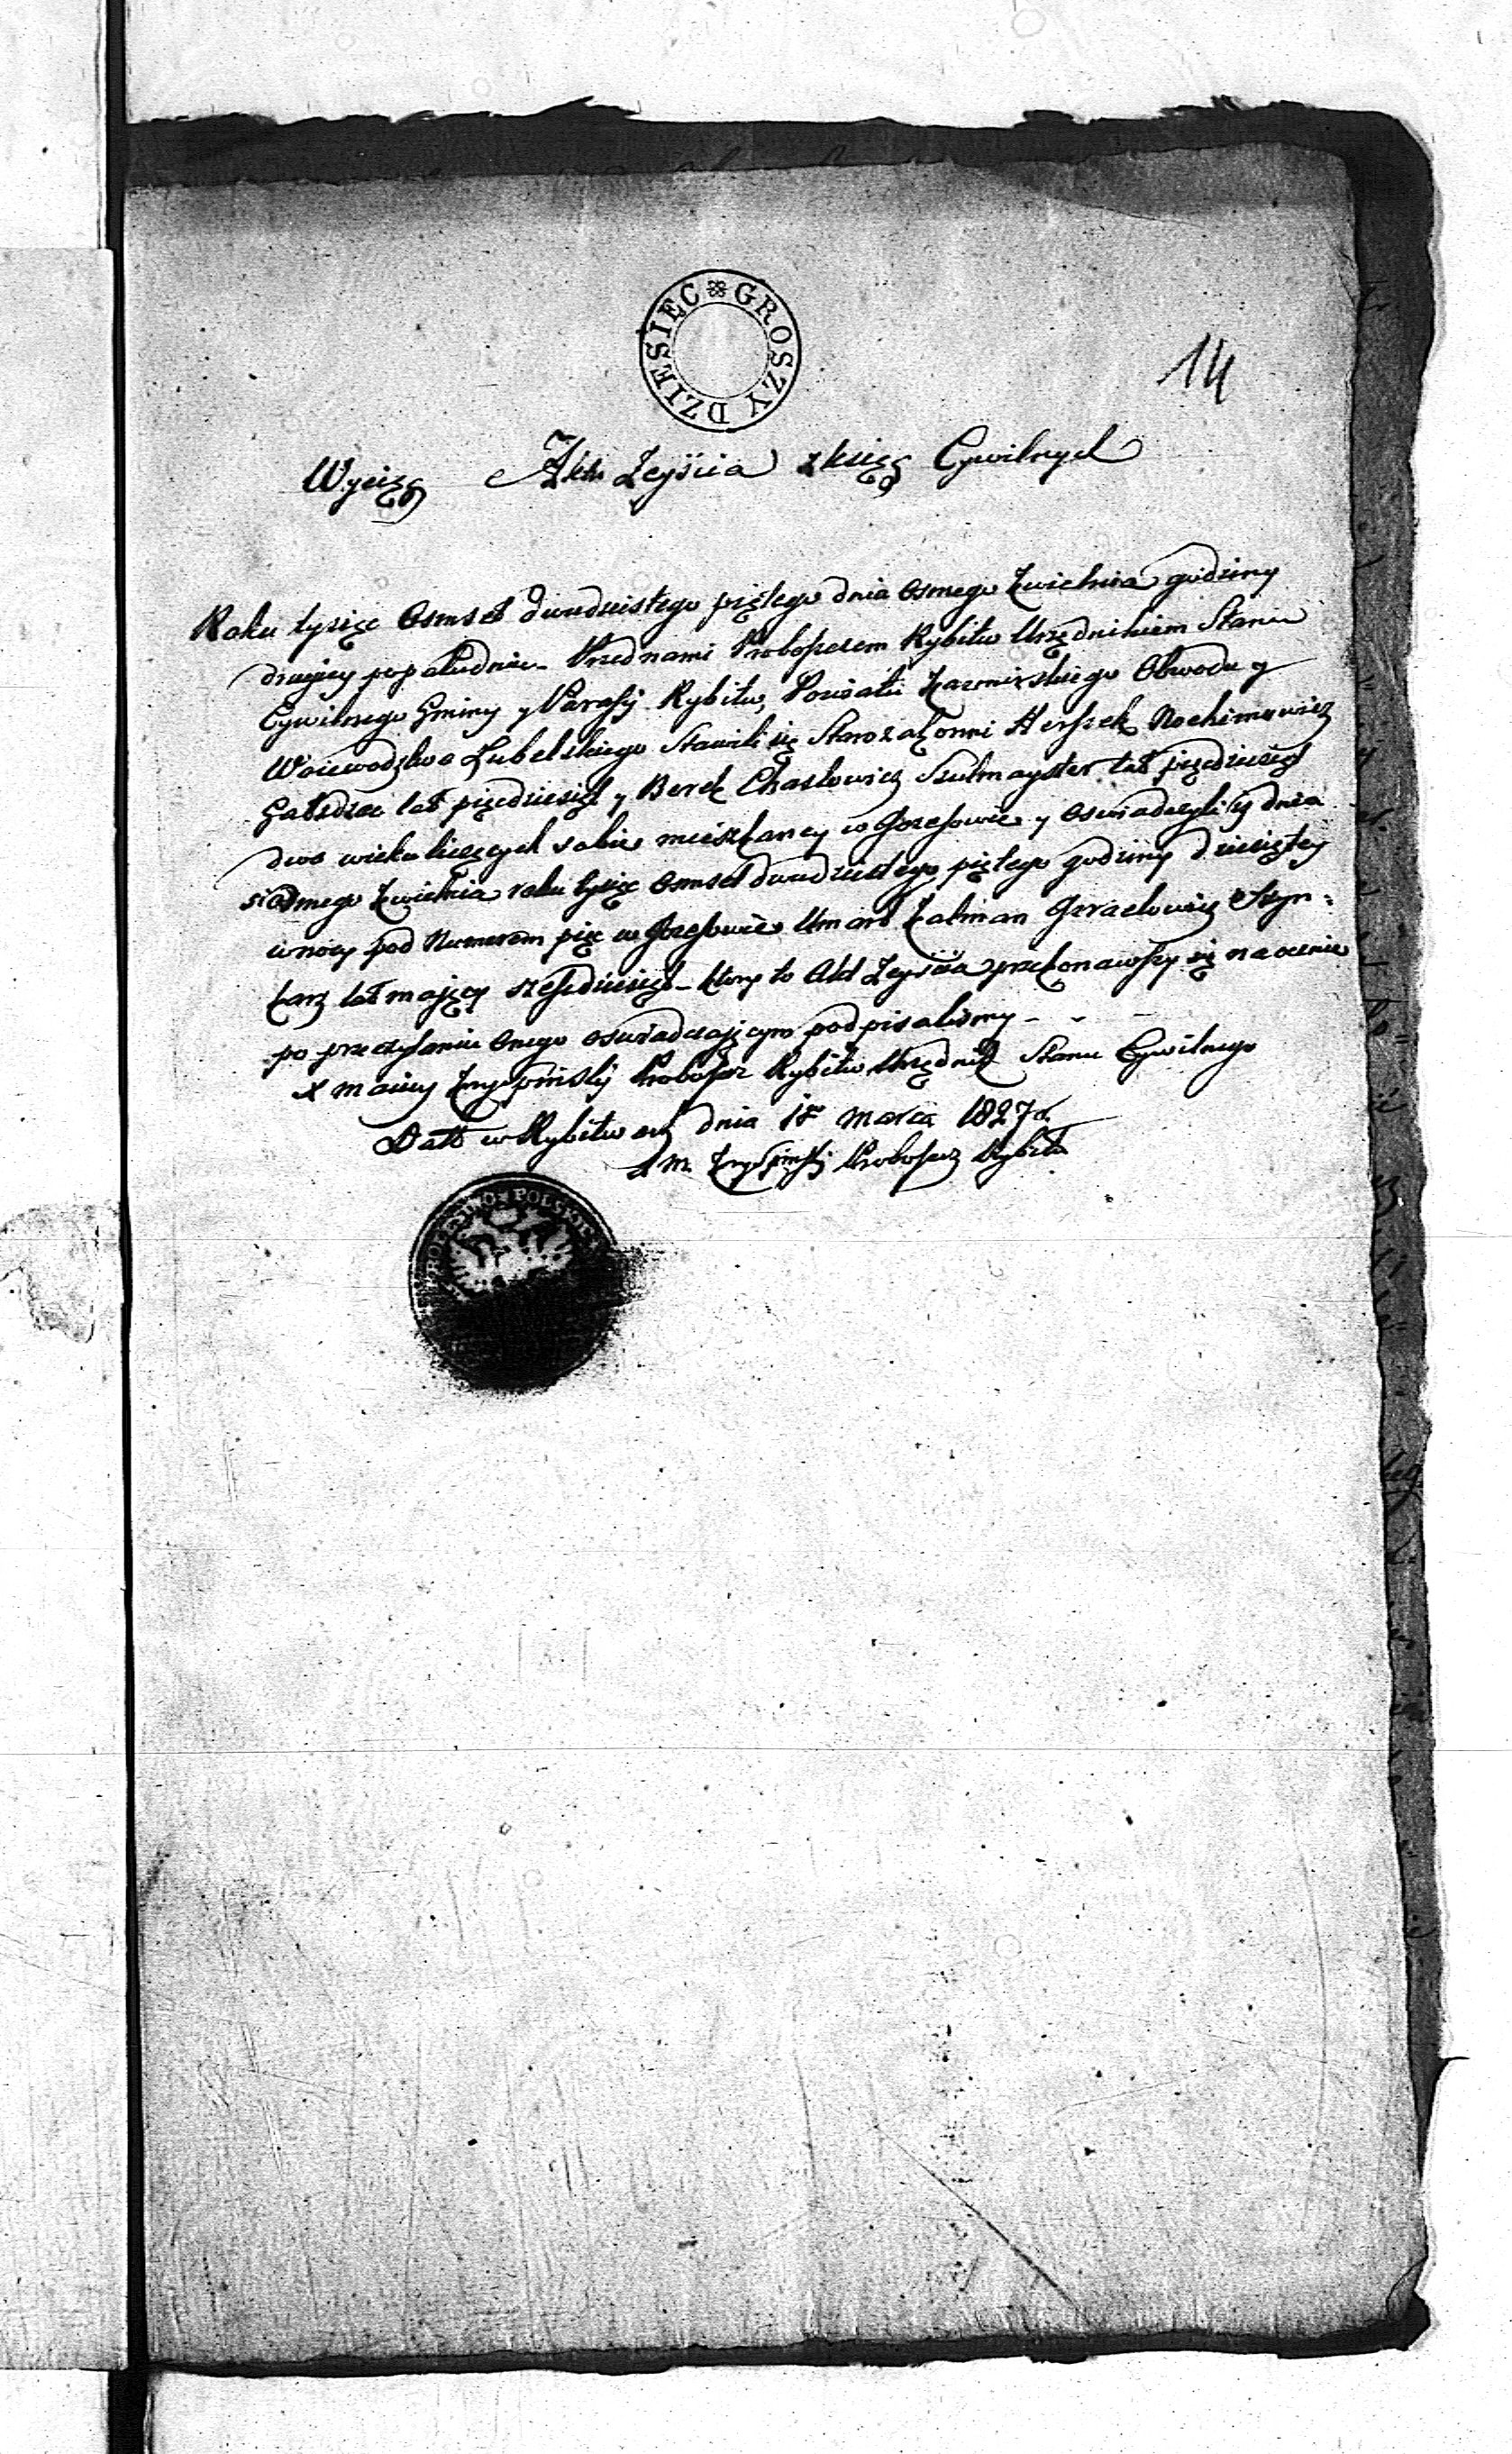 GROSZY DZIESIĘC
14
Wyciąg Aktu Zeyścia z ksiąg Cywilnych
Roku tysiąc Osmset dwudziestego piątego dnia Osmego Kwietnia godziny
drugiey popołudniu – Przed nami Proboszczem Rybitw Urzędnikiem Stanu
Cywilnego Gminy y Parafij Rybitw, Powiatu Kazmirskiego Obwodu y
Woiewodztwa Lubelskiego Stawili się Starozakonni Herszek Nochimowicz
lat pięcdziesiąt y Berek Chaslowicz Szulmayster lat pięcdziesiąt
dwa wieku liczących sobie mieszkancy w Jozefowie y oswiadczyli iż dnia
siodmego Kwietnia roku tysiąc Osmset dwudziestego piątego godziny dziesiątey
w nocy pod Numerem pięc w Jozefowie Umarł Kalman Jzraelowicz Szyn=
karz lat maiący szescdziesiąt – ktory to Akt Zeyścia przekonawszy się naocznie
po przeczytaniu Onego oswiadczaiącym podpisalismy – – –
X Proboszcz Rybitw Urzędnik Stanu Cywilnego
Datt w Rybitwach dnia 18 Marca 1827 r.
X M. Proboszcz Rybitw
KROLESTWO POLSKIE